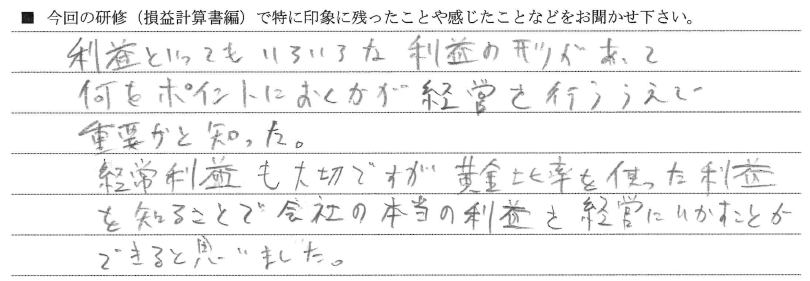 ■ 今回の研修（損益計算書編）で特に印象に残ったことや感じたことなどをお聞かせ下さい。
利益といってもいろいろな利益の形があって
何をポイントにおくかが経営を行ううえで
重要かと知った。
経常利益も大切ですが黄金比率を使った利益
を知ることで会社の本当の利益を経営にいかすことが
できると思いました。